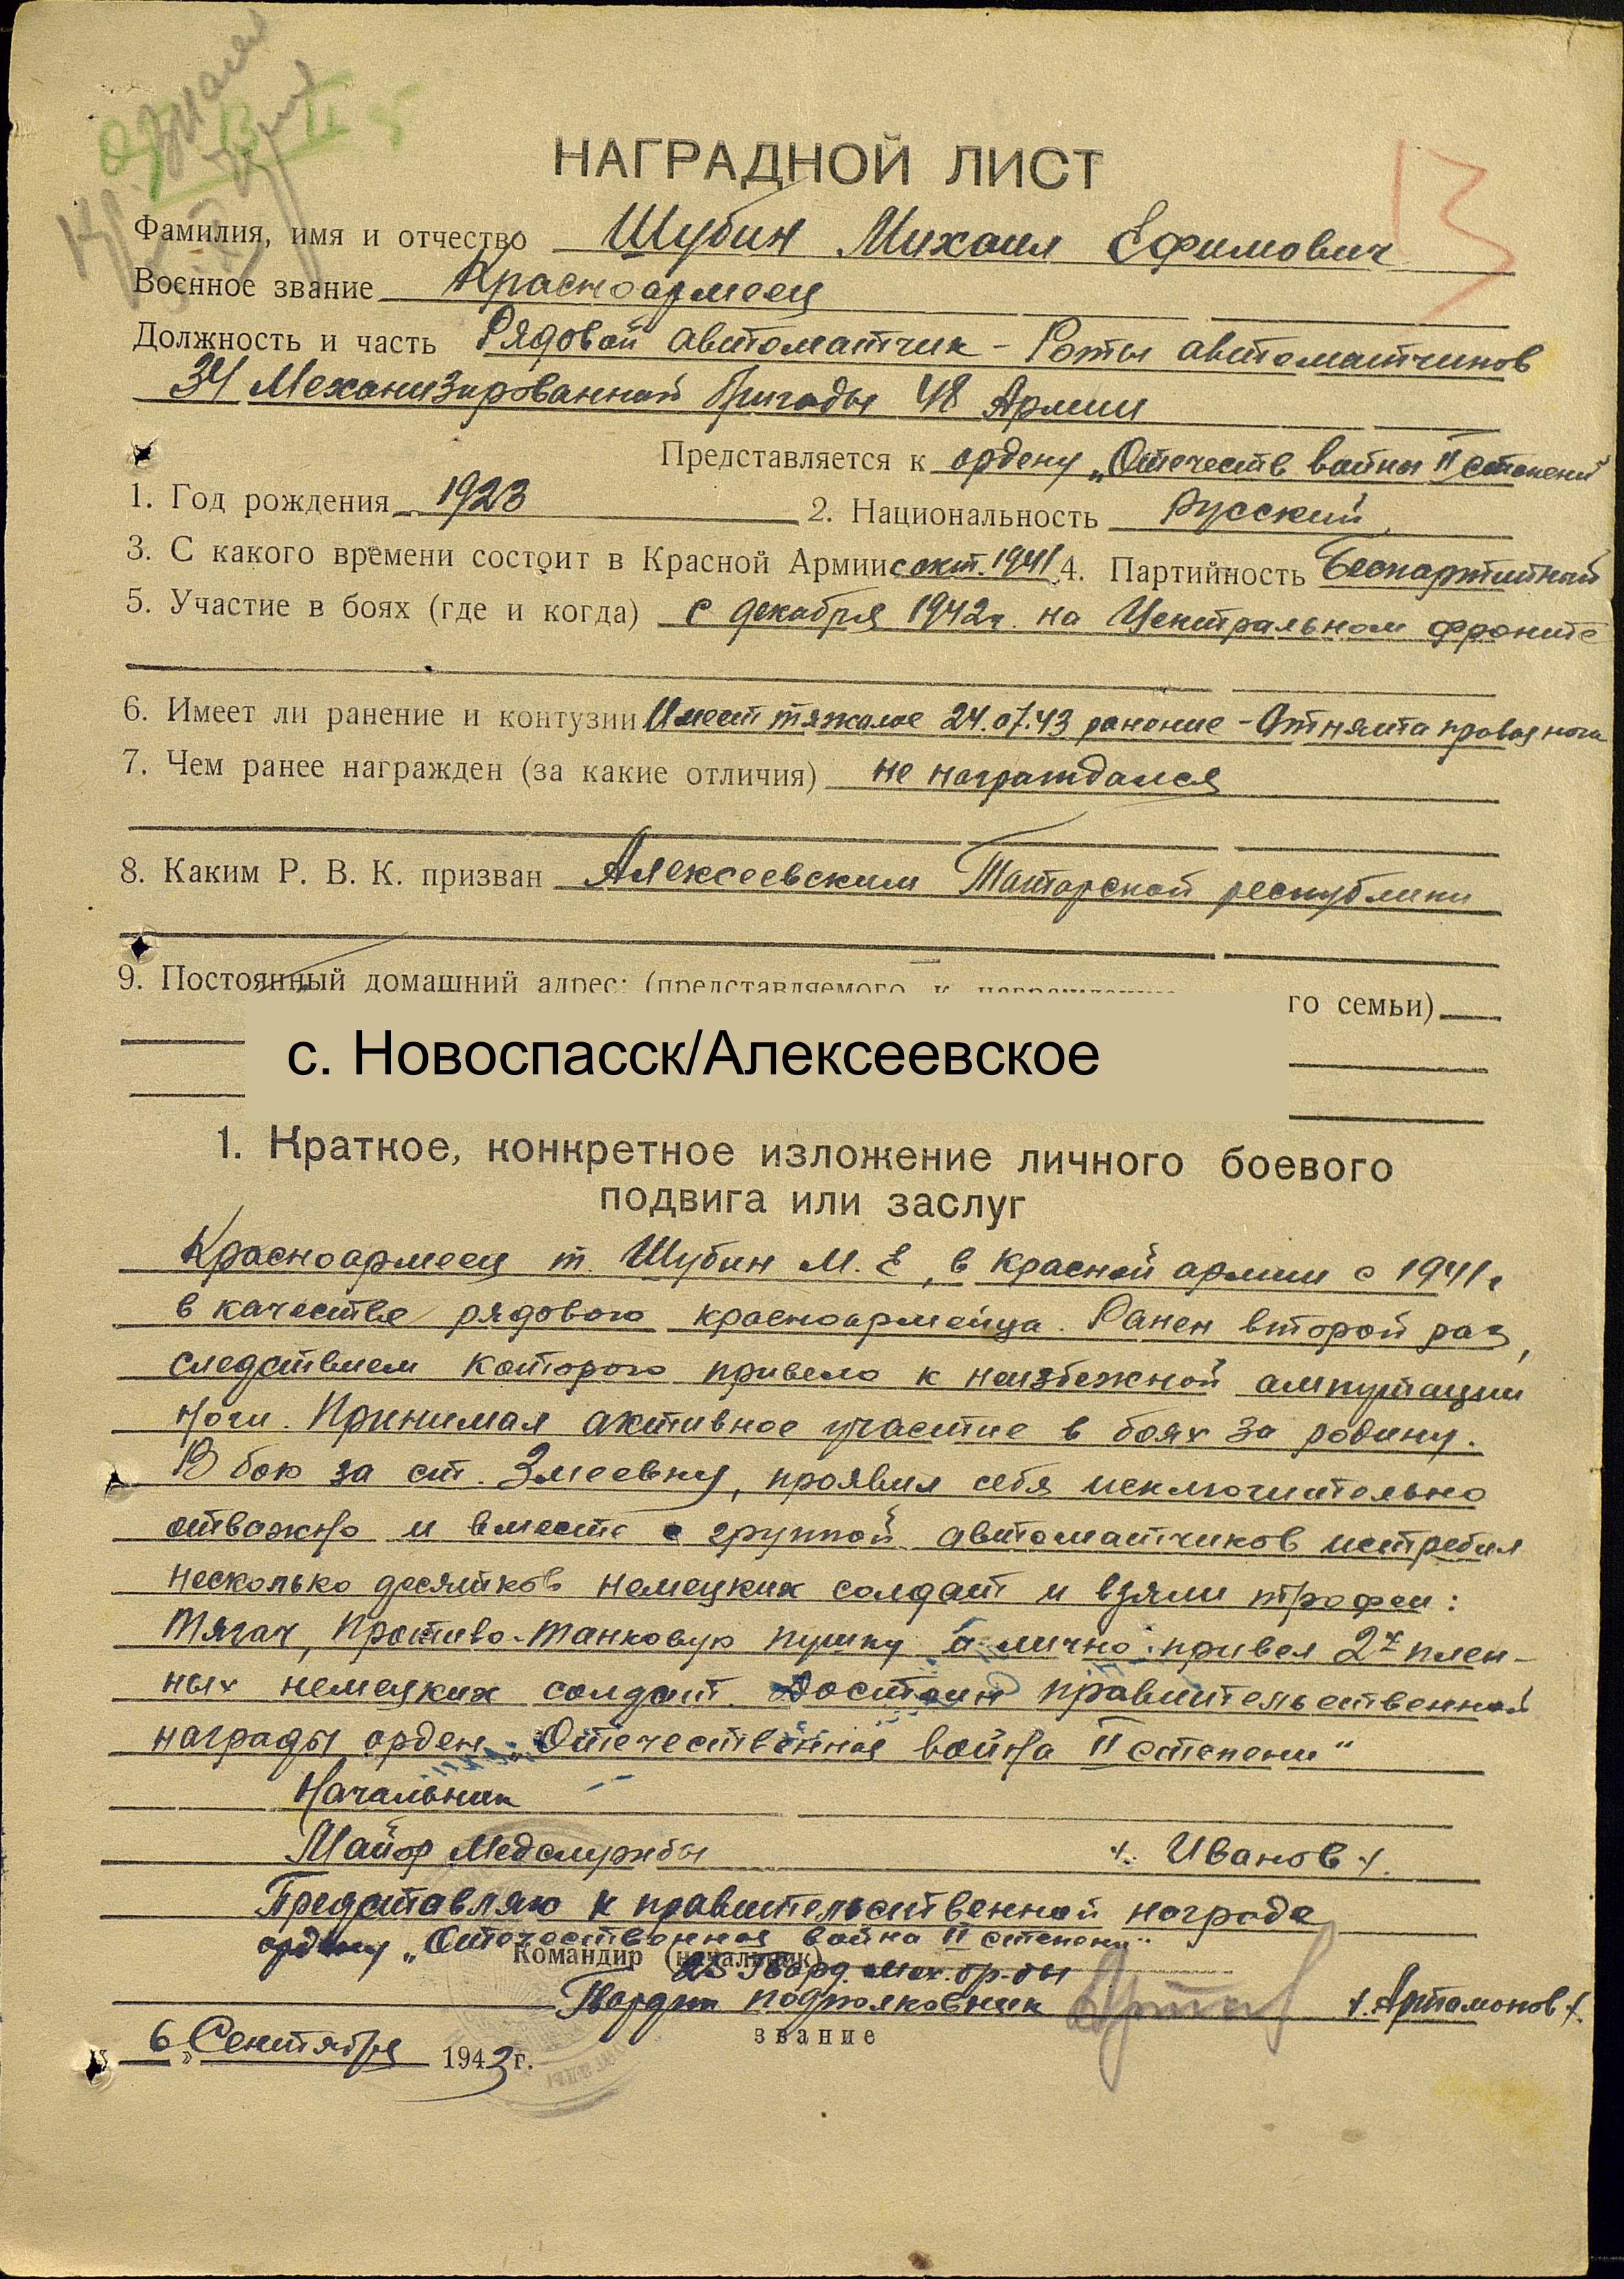 НАГРАДНОЙ ЛИСТ
Фамилия, имя и отчество Шубин Михаил Ефимович
Военное звание Красноармеец
Должность и часть Рядовой автоматчик - Роты автоматчиков
34 Механизированной бригады 48 Армии
Представляется к ордену „Отечеств войны II степени"
1. Год рождения 1923 2. Национальность Русский
3. С какого времени состоит в Красной Армии с окт. 1941 4. Партийность Беспартийный
5. Участие в боях (где и когда) с декабря 1942г. на Центральном фронте
6. Имеет ли ранение и контузии Имеет тяжелое 24.07.43 ранение - Отнята правая нога
7. Чем ранее награжден (за какие отличия) не награждался
8. Каким Р. В. К. призван Алексеевским Татарской республики
9. Постоянный домашний адрес: (представляемого к го семьи)
с. Новоспасск/Алексеевское
1. Краткое, конкретное изложение личного боевого
подвига или заслуг
Красноармеец т. Шубин М. Е, в Красной армии с 1941г
в качестве рядового красноармейца. Ранен второй раз,
следствием которого привело к неизбежной ампутации
ноги. Принимал активное участие в боях за родину.
В бою за ст. Змеевку, проявил себя исключительно
отважно и вместе с группой автоматчиков истребил
несколько десятков немецких солдат и взяли трофеи:
Тягач, Противо-танковую пушку а лично привел 2х плен-
ных немецких солдат. Достоин правительственной
награды орден „Отечественная война II степени"
Начальник
Майор Медслужбы /. Иванов /.
Представляю к правительственной награде
ордену „Отечественная война II степени"
Командир (начальник)
25 Гвард. мех. бр-ды
Гвардии подполковник /. Артамонов /.
звание
6 „ Сентября 1943 г.
13